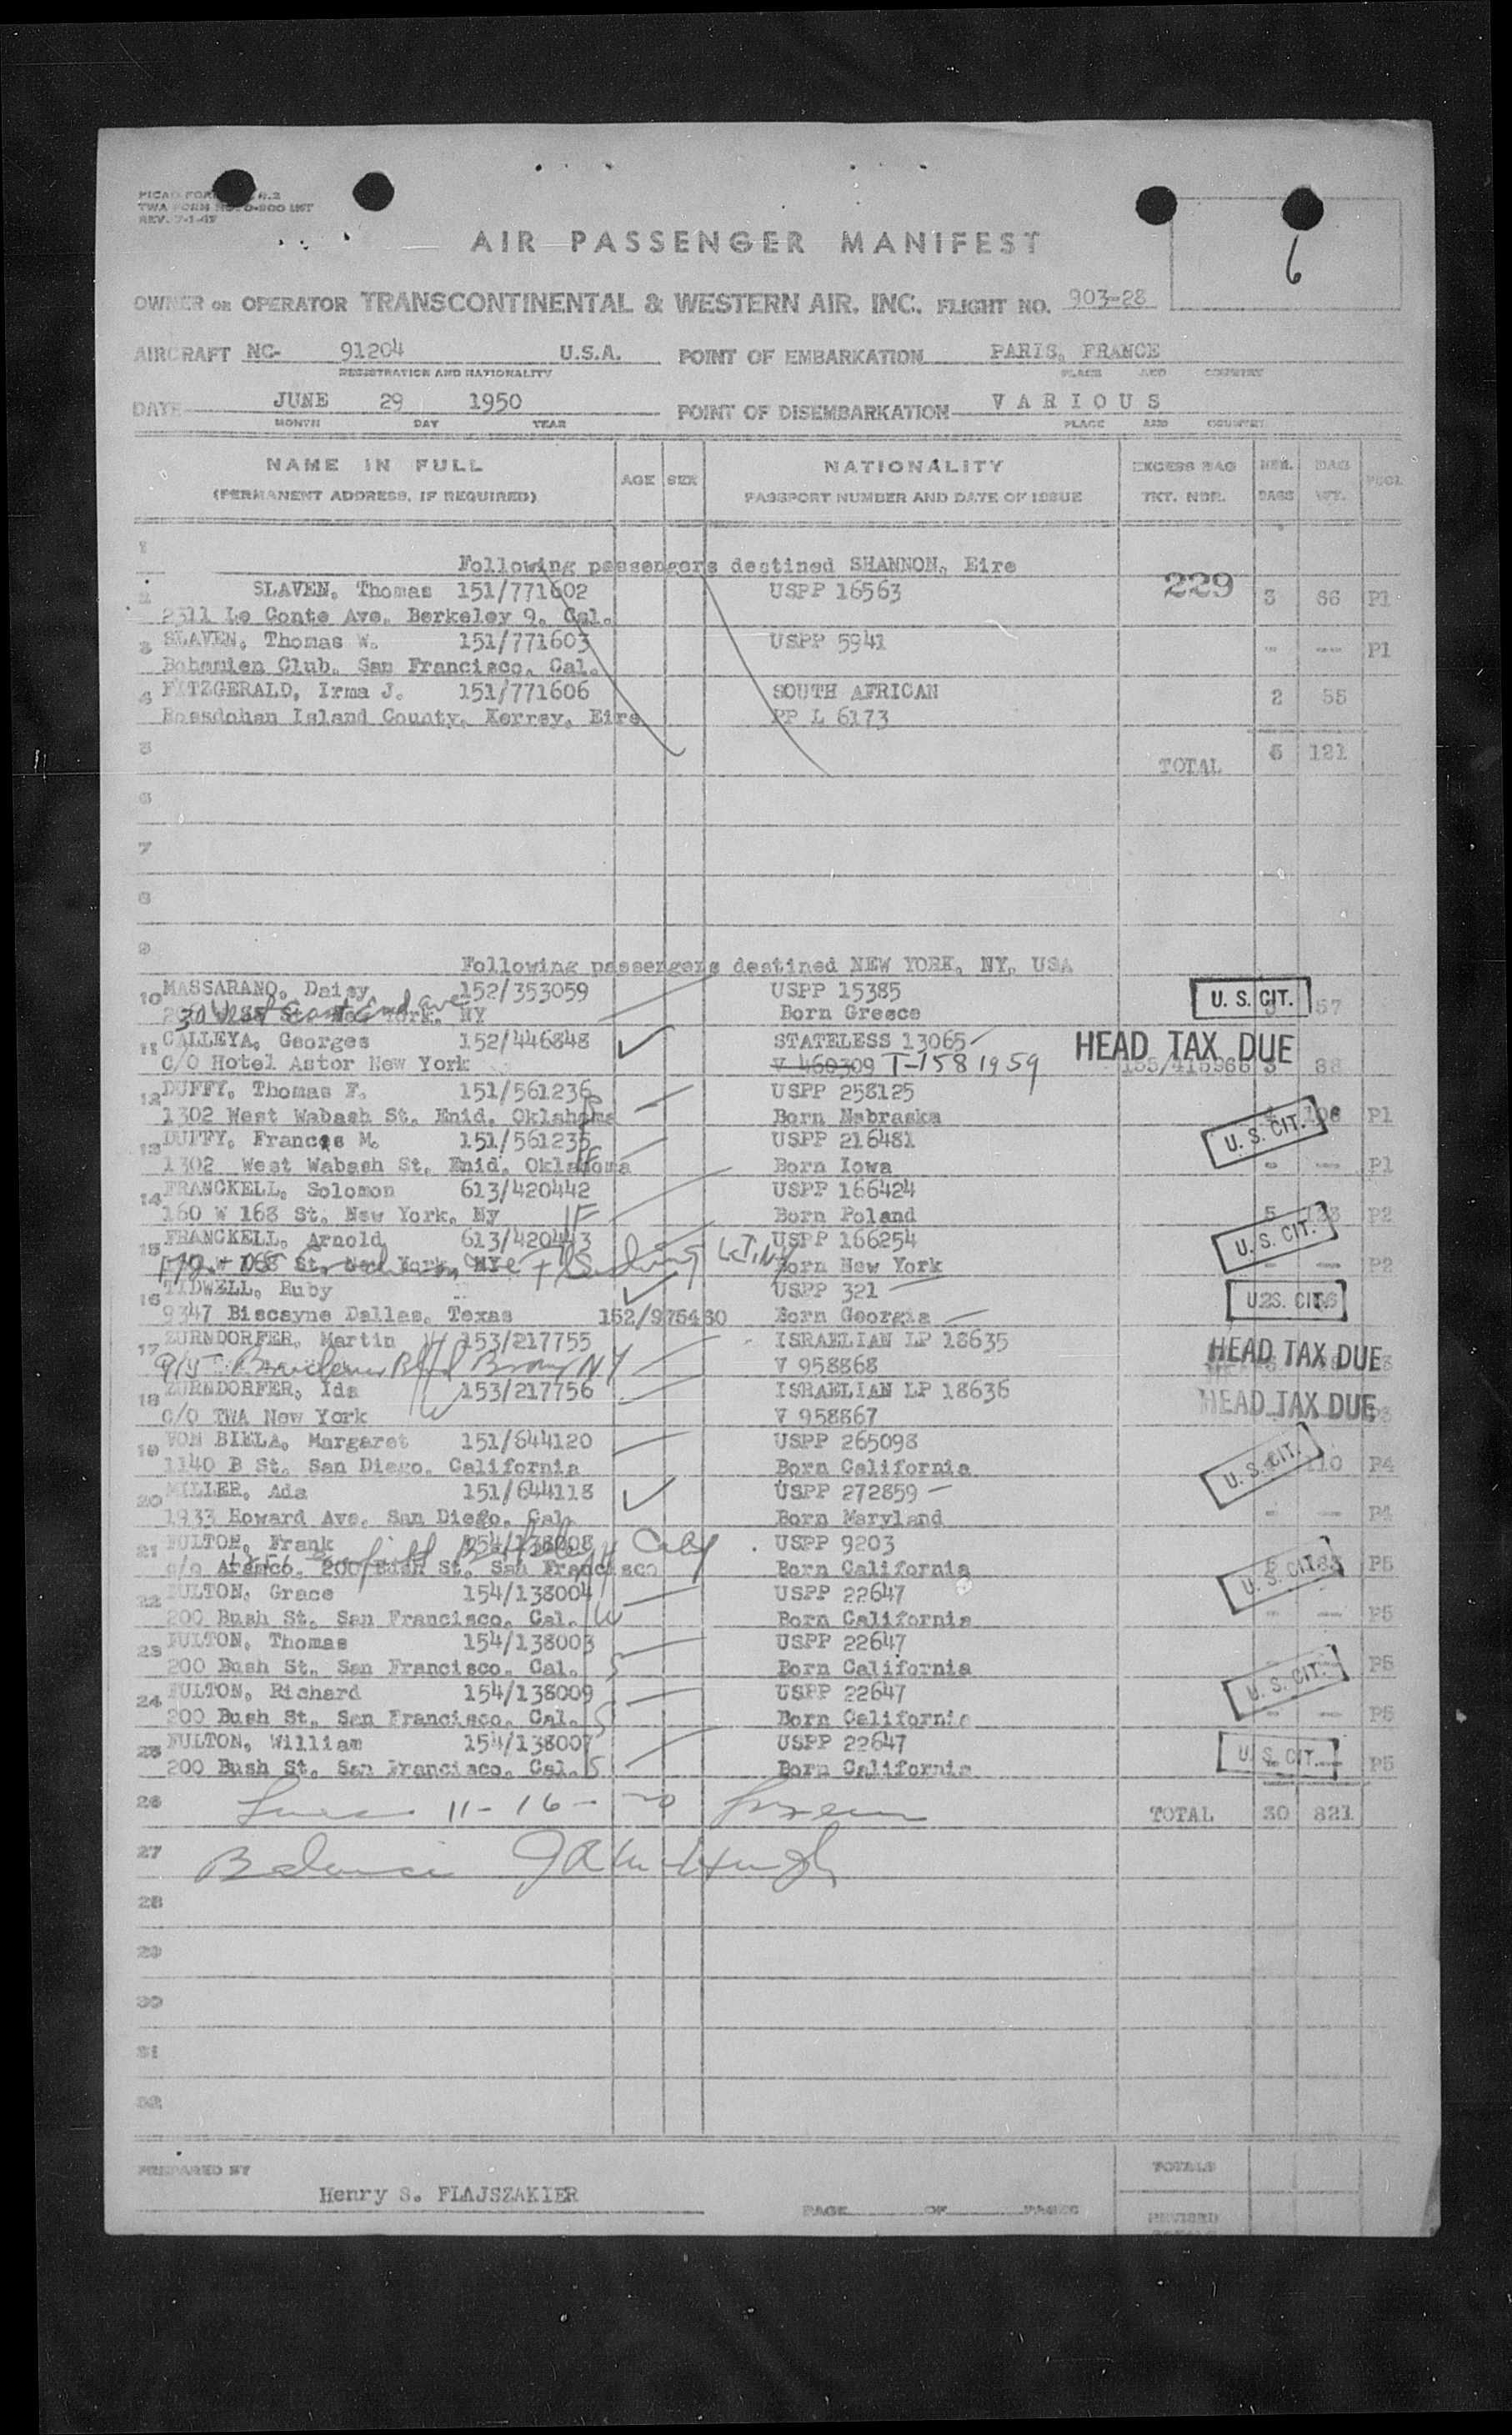 TWA FORM
REV. 7-1-47
6
AIR PASSENGER MANIFEST
OWNER OR OPERATOR TRANSCONTINENTAL & WESTERN AIR, INC. FLIGHT NO. 903-28
AIRCRAFT NC- 91204 U.S.A. POINT OF EMBARKATION PARIS, FRANCE
REGISTRATION AND NATIONALITY PLACE AND COUNTRY
DATE JUNE 29 1950 POINT OF DISEMBARKATION VARIOUS
MONTH DAY YEAR PLACE AND COUNTRY
NAME IN FULL AGE SEX NATIONALITY EXCESS BAG NBR. BAG
(PERMANENT ADDRESS, IF REQUIRED) PASSPORT NUMBER AND DATE OF ISSUE TKT. NBR. BAGS WT.
1
Following passengers destined SHANNON, Eire
2 SLAVEN, Thomas 151/771602 USPP 16563 229 3 66 P1
2311 Le Conte Ave. Berkeley 9. Cal.
3 SLAVEN, Thomas W. 151/771603 USPP 5941 - -- P1
Bohemien Club. San Francisco. Cal.
4 FITZGERALD, Irma J. 151/771606 SOUTH AFRICAN 2 55
Rossdohan Island County, Kerrey, Eire PP L 6173
5 TOTAL 5 121
6
7
8
9
Following passengers destined NEW YORK, NY, USA
10 MASSARANO, Daisy 152/353059 USPP 15385 U. S. CIT. 57
St. New York, NY Born Greece
11 CALLEYA, Georges 152/446848 STATELESS 13065 HEAD TAX DUE
C/O Hotel Astor New York V 460309 T-1581959 155/415966 3 88
12 DUFFY, Thomas F. 151/561236 USPP 258125
1302 West Wabash St. Enid, Oklahoma Born Nebraska 108 P1
13 DUFFY, Frances M. 151/561235 USPP 216481 U. S. CIT.
1302 West Wabash St. Enid. Oklahoma Born Iowa - -- P1
14 FRANCKELL, Solomon 613/420442 USPP 166424
160 W 168 St. New York, Ny Born Poland 5 P2
15 FRANCKELL, Arnold 613/420443 USPP 166254 U. S. CIT.
St. New York, NY Born New York - -- P2
16 TIDWELL, Ruby USPP 321
9347 Biscayne Dallas, Texas 152/975430 Born Georgia U. S. CIT.
17 ZURNDORFER, Martin 153/217755 ISRAELIAN LP 18635 HEAD TAX DUE
V 958868
18 ZURNDORFER, Ida 153/217756 ISRAELIAN LP 18636 HEAD TAX DUE
C/O TWA New York V 958867 P3
19 VON BIELA, Margaret 151/644120 USPP 265098
1140 B St. San Diego, California Born California U. S. CIT. 110 P4
20 MILLER, Ada 151/644118 USPP 272859
1933 Howard Ave. San Diego. Cal. Born Maryland - - P4
21 FULTON, Frank 154/138008 USPP 9203
c/o Aramco, 200 Bush St. San Francisco Born California U. S. CIT. P5
22 FULTON, Grace 154/138004 USPP 22647
200 Bush St. San Francisco. Cal. W Born California - -- P5
23 FULTON, Thomas 154/138003 USPP 22647
200 Bush St. San Francisco. Cal. S Born California P5
24 FULTON, Richard 154/138009 USPP 22647 U. S. CIT.
200 Bush St. San Francisco. Cal. S Born California - -- P5
25 FULTON, William 154/138007 USPP 22647
200 Bush St. San Francisco. Cal. S Born California U. S. CIT. P5
26 11-16- TOTAL 30 821
27
28
29
30
31
32
PREPARED BY Henry S. FLAJSZAKIER PAGE OF PAGES TOTALS
REVISED